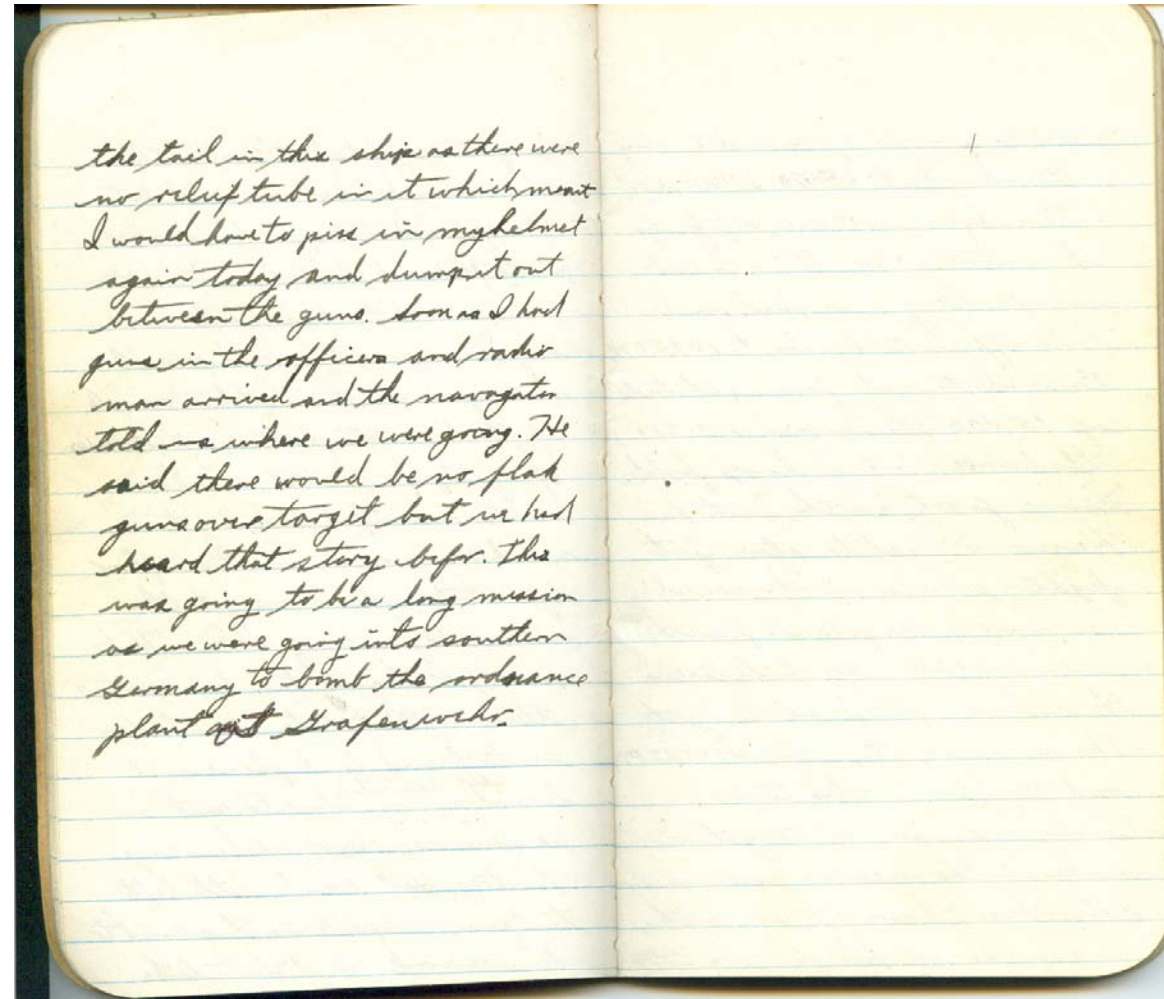 the tail in this ship as there were
no relief tube in it which meant
I would have to piss in my helmet
again today and dump it out
between the guns. Soon as I had
guns in the officers and radio
man arrived and the navagator
told us where we were going. He
said there would be no flak
guns over target but we had
heard that story befor. This
was going to be a long mission
as we were going into southern
Germany to bomb the ordnance
plant at Grafenwehr.